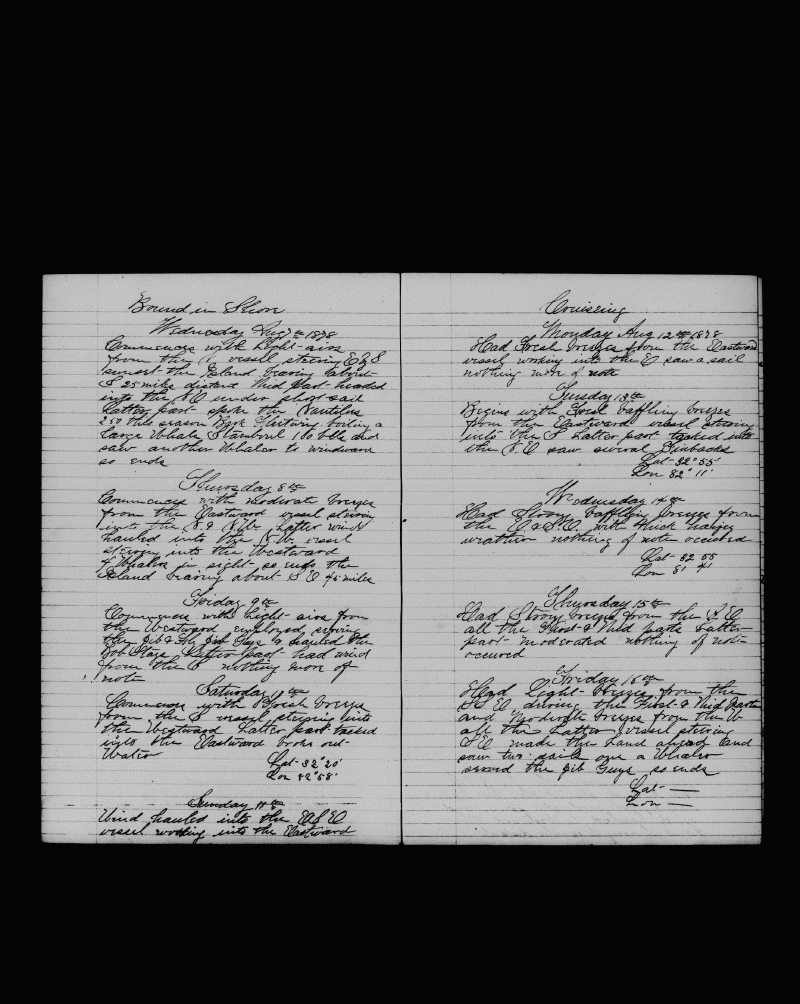 Bound in Shore
Wednesday Aug 7th 1878
Commences with Light airs
from the N vessel steering E by S
sunset the Island bearing about
S 25 miles distant Mid part headed
into the under short sail
Latter part spoke the Nautilus
250 this season Bark boiling a
large Whale 100 bbls and
saw another Whaler to windward
so ends
Thursday 8th
Commences with moderate breezes
from the Eastward vessel steering
into the N & N.W. Latter wind
hauled into the N.W. vessel
steering into the Westward
4 Whalers in sight so ends the
Island bearing about S E 45 miles
Friday 9th
Commences with Light airs from
the Westward employed serving
the jib & Guys & the
Job Stays Latter part had wind
from the S nothing more of
note
Saturday 10th
Commences with Fresh breezes
from the S vessel steering into
the Westward Latter part tacked
into the Eastward broke out
Water
Lat 32° 20'
Lon 82° 58'
Sunday 11th
Wind hauled into the E S E
vessel working into the Eastward
Cruising
Monday Aug 12th 1878
Had Fresh breezes from the Eastward
vessel working into the E saw a sail
nothing more of note
Tuesday 13th
Begins with Fresh baffling breezes
from the Eastward vessel steering
into the S Latter part tacked into
the S.E saw several Finbacks
Lat 32° 55'
Lon 82° 11'
Wednesday 14th
Had Strong baffling breezes from
the E & S.E. with thick
weather nothing of note occurred
Lat 32 55
Lon 81 41
Thursday 15th
Had Strong breezes from the S E
all the First & Mid parts Latter
part moderated nothing of note
occured
Friday 16th
Had Light breezes from the
S E during the First & Mid parts
and Moderate breezes from the W
all the Latter vessel steering
S.E made the Land ahead
saw two sails one a Whaler
served the jib Guys so ends
Lat —
Lon —